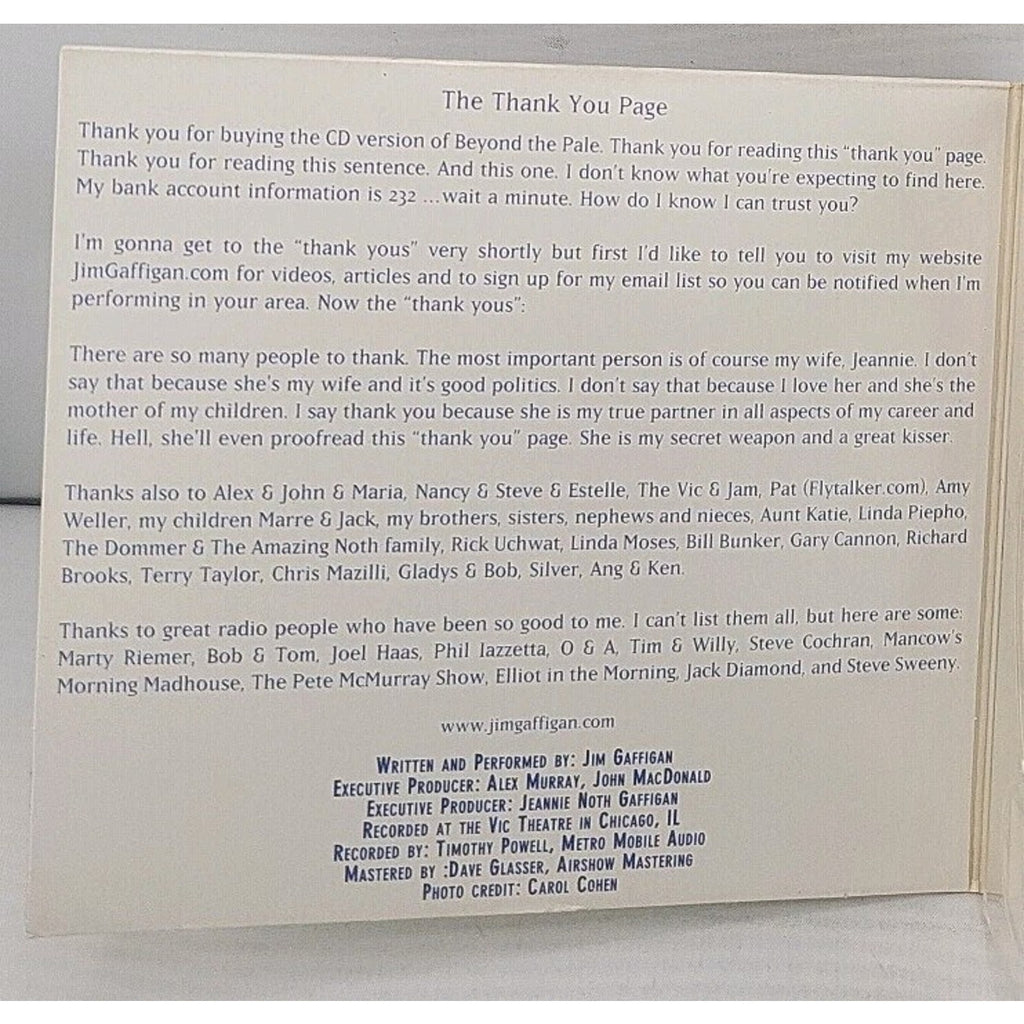 The Thank You Page
Thank you for buying the CD version of Beyond the Pale. Thank you for reading this “thank you” page.
Thank you for reading this sentence. And this one. I don't know what you're expecting to find here.
My bank account information is 232 ...wait a minute. How do I know I can trust you?
I'm gonna get to the “thank yous” very shortly but first I'd like to tell you to visit my website
JimGaffigan.com for videos, articles and to sign up for my email list so you can be notified when I'm
performing in your area. Now the “thank yous”:
There are so many people to thank. The most important person is of course my wife, Jeannie. I don't
say that because she's my wife and it's good politics. I don't say that because I love her and she's the
mother of my children. I say thank you because she is my true partner in all aspects of my career and
life. Hell, she'll even proofread this “thank you” page. She is my secret weapon and a great kisser.
Thanks also to Alex & John & Maria, Nancy & Steve & Estelle, The Vic & Jam, Pat (Flytalker.com), Amy
Weller, my children Marre & Jack, my brothers, sisters, nephews and nieces, Aunt Katie, Linda Piepho,
The Dommer & The Amazing Noth family, Rick Uchwat, Linda Moses, Bill Bunker, Gary Cannon, Richard
Brooks, Terry Taylor, Chris Mazilli, Gladys & Bob, Silver, Ang & Ken.
Thanks to great radio people who have been so good to me. I can't list them all, but here are some:
Marty Riemer, Bob & Tom, Joel Haas, Phil Iazzetta, O & A, Tim & Willy, Steve Cochran, Mancow's
Morning Madhouse, The Pete McMurray Show, Elliot in the Morning, Jack Diamond, and Steve Sweeny.
www.jimgaffigan.com
Written and Performed by: Jim Gaffigan
Executive Producer: Alex Murray, John MacDonald
Executive Producer: Jeannie Noth Gaffigan
Recorded at the Vic Theatre in Chicago, IL
Recorded by: Timothy Powell, Metro Mobile Audio
Mastered by :Dave Glasser, Airshow Mastering
Photo credit: Carol Cohen